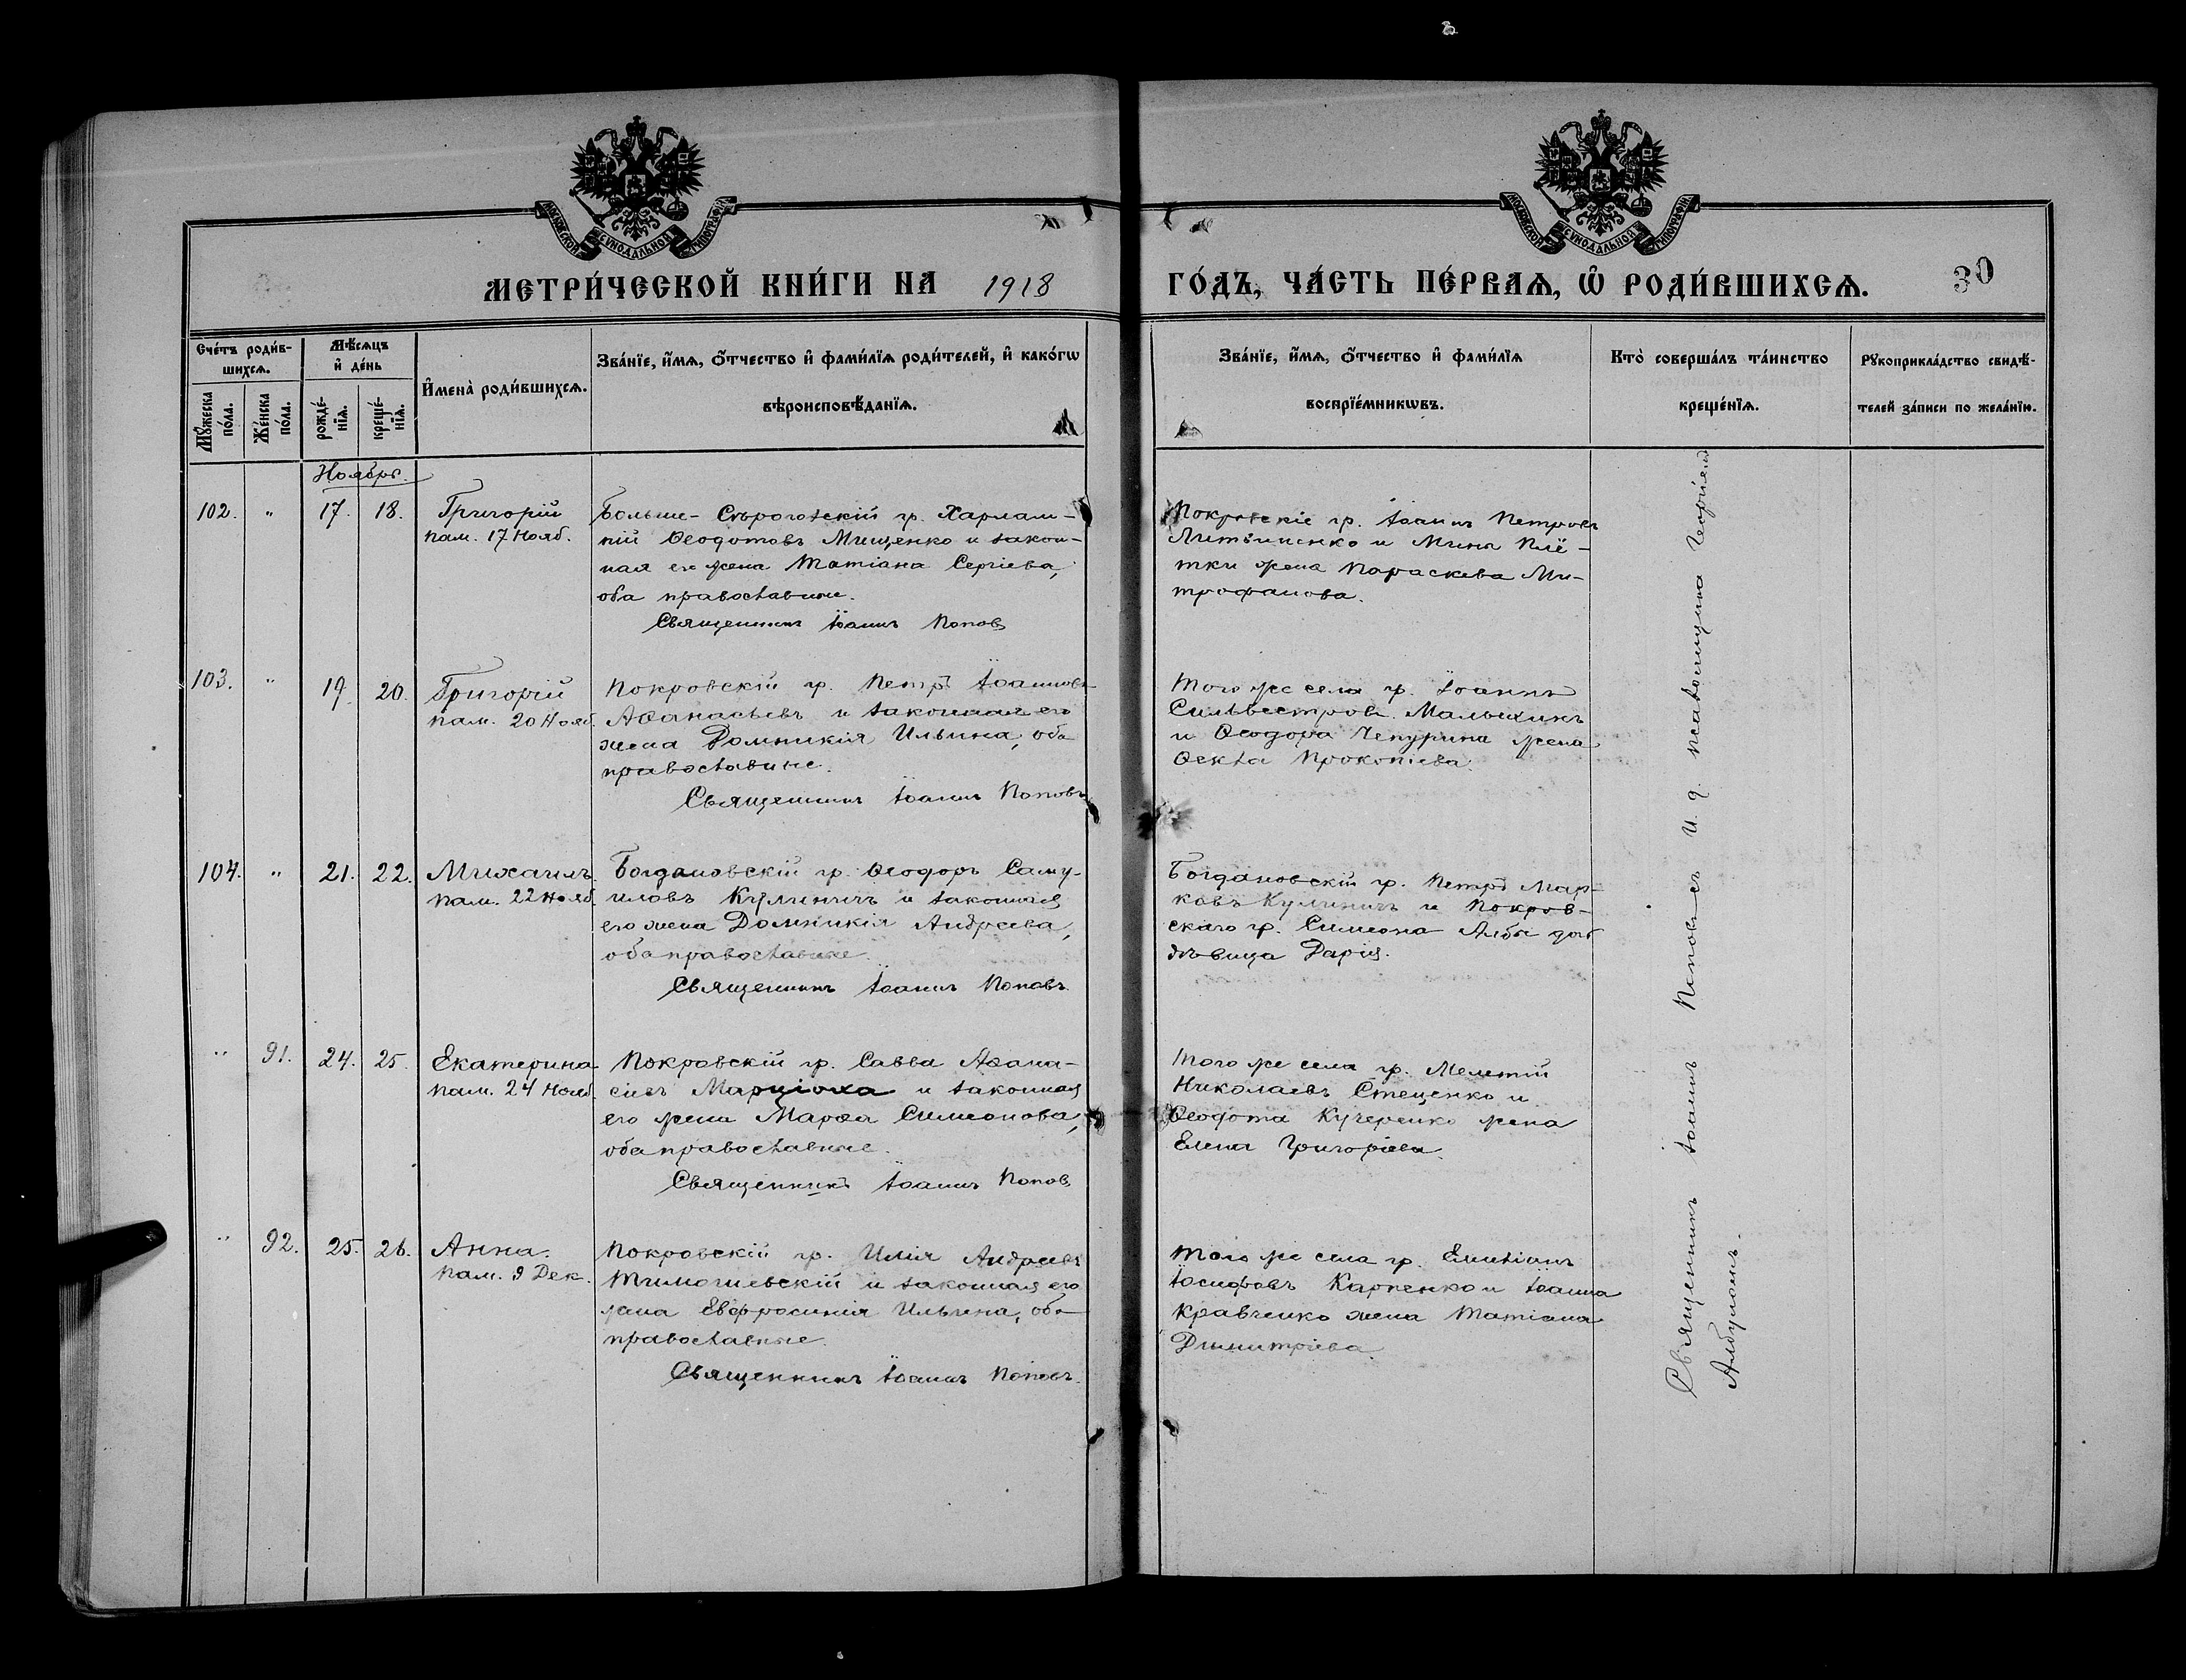 МОСКОВСКОЙ СѴНОДАЛЬНОЙ ТИПОГРАФІИ
МОСКОВСКОЙ СѴНОДАЛЬНОЙ ТИПОГРАФІИ
МЕТРИ́ЧЕСКОЙ КНИ́ГИ НА 1918
ГО́ДЪ, ЧА́СТЬ ПЕ́РВАѦ, Ѡ҆ РОДИ́ВШИХСѦ.
30
Сче́тъ роди́в-
шихсѧ.
Мꙋ́жеска по́ла.
Же́нска по́ла.
Мѣ́сѧцъ
и҆ де́нь
рожде́-
нїѧ.
креще́-
нїѧ.
И҆мена̀ роди́вшихсѧ.
Зва́нїе, и҆́мѧ, ѻ҆́тчество и҆ фами́лїѧ роди́телей, и҆ како́гѡ
вѣроисповѣ́данїѧ.
Зва́нїе, и҆́мѧ, ѻ҆́тчество и҆ фами́лїѧ
воспрїе́мникѡвъ.
Кто̀ соверша́лъ та́инство
креще́нїѧ.
Рꙋкоприкла́дство свидѣ́-
телей за́писи по жела́нїю.
Ноябрь.
102. " 17. 18. Григорій
пам. 17 Нояб.
Больше-Сѣрогозскій гр. Харлам-
пій Ѳеодотовъ Мищенко и закон-
ная его жена Татіана Сергіева,
оба православные.
Священникъ Іоаннъ Попов
Покровскіе гр. Іоаннъ Петровъ
Литвиненко и Мины Плё-
тки жена Параскева Ми-
трофанова.
103. " 19. 20. Григорій
пам. 20 Нояб.
Покровскій гр. Петръ Іоанновъ
Аѳанасьевъ и законная его
жена Домникія Ильина, оба
православные.
Священникъ Іоаннъ Поповъ
Того же села гр. Іоаннъ
Сильвестровъ Малыхинъ
и Ѳеодора Чепурина жена
Ѳекла Прокопіева.
104. " 21. 22. Михаилъ.
пам. 22 Нояб.
Богдановскій гр. Ѳеодоръ Саму-
иловъ Кулиничъ и законная
его жена Домникія Андреева,
оба православные.
Священникъ Іоаннъ Поповъ
Богдановскій гр. Петръ Мар-
ковъ Кулиничъ и Покров-
скаго гр. Симеона дочь
дѣвица Дарія.
" 91. 24. 25. Екатерина
пам. 24 Нояб.
Покровскій гр. Савва Аѳана-
сіевъ и законная
его жена Марѳа Симеонова,
оба православные.
Священникъ Іоаннъ Попов
Того же села гр. Мелетій
Николаевъ Стеценко и
Ѳеодота Кучеренко жена
Елена Григоріева.
" 92. 25. 26. Анна.
пам. 9 Дек.
Покровскій гр. Илія Андреевъ
Тимошевскій и законная его
жена Евфросинія Ильина, оба
православные.
Священникъ Іоаннъ Поповъ.
Того же села гр. Емиліанъ
Іосифовъ Карпенко и Іоанна
Кравченко жена Татіана
Димитріева.
Священникъ Іоаннъ Поповъ съ И. д. псаломщика Георгіемъ